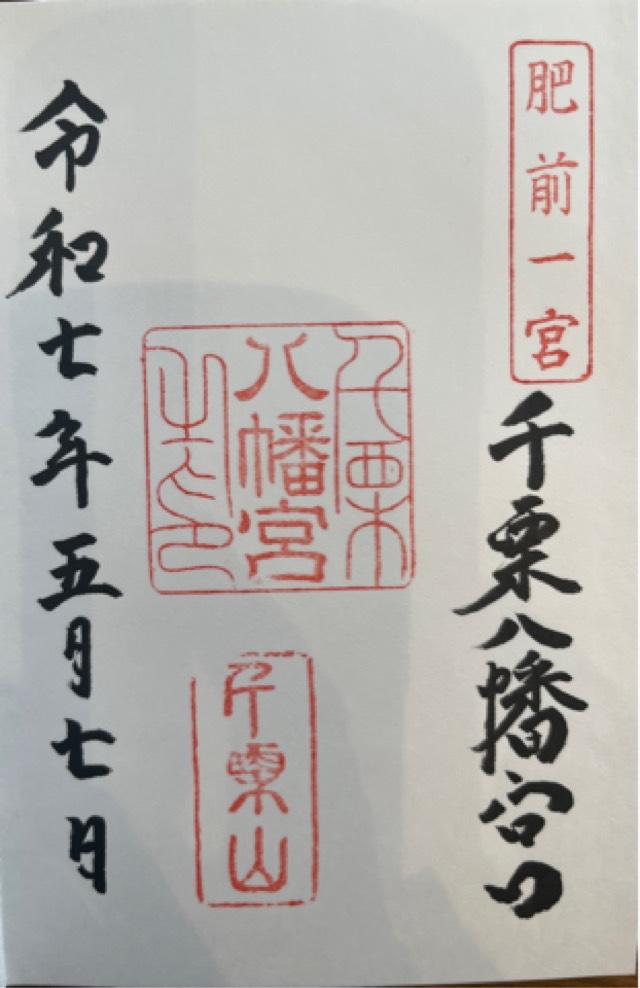 肥前一宮
千栗八幡宮
八幡宮
千栗
之印
千栗山
令和七年五月七日